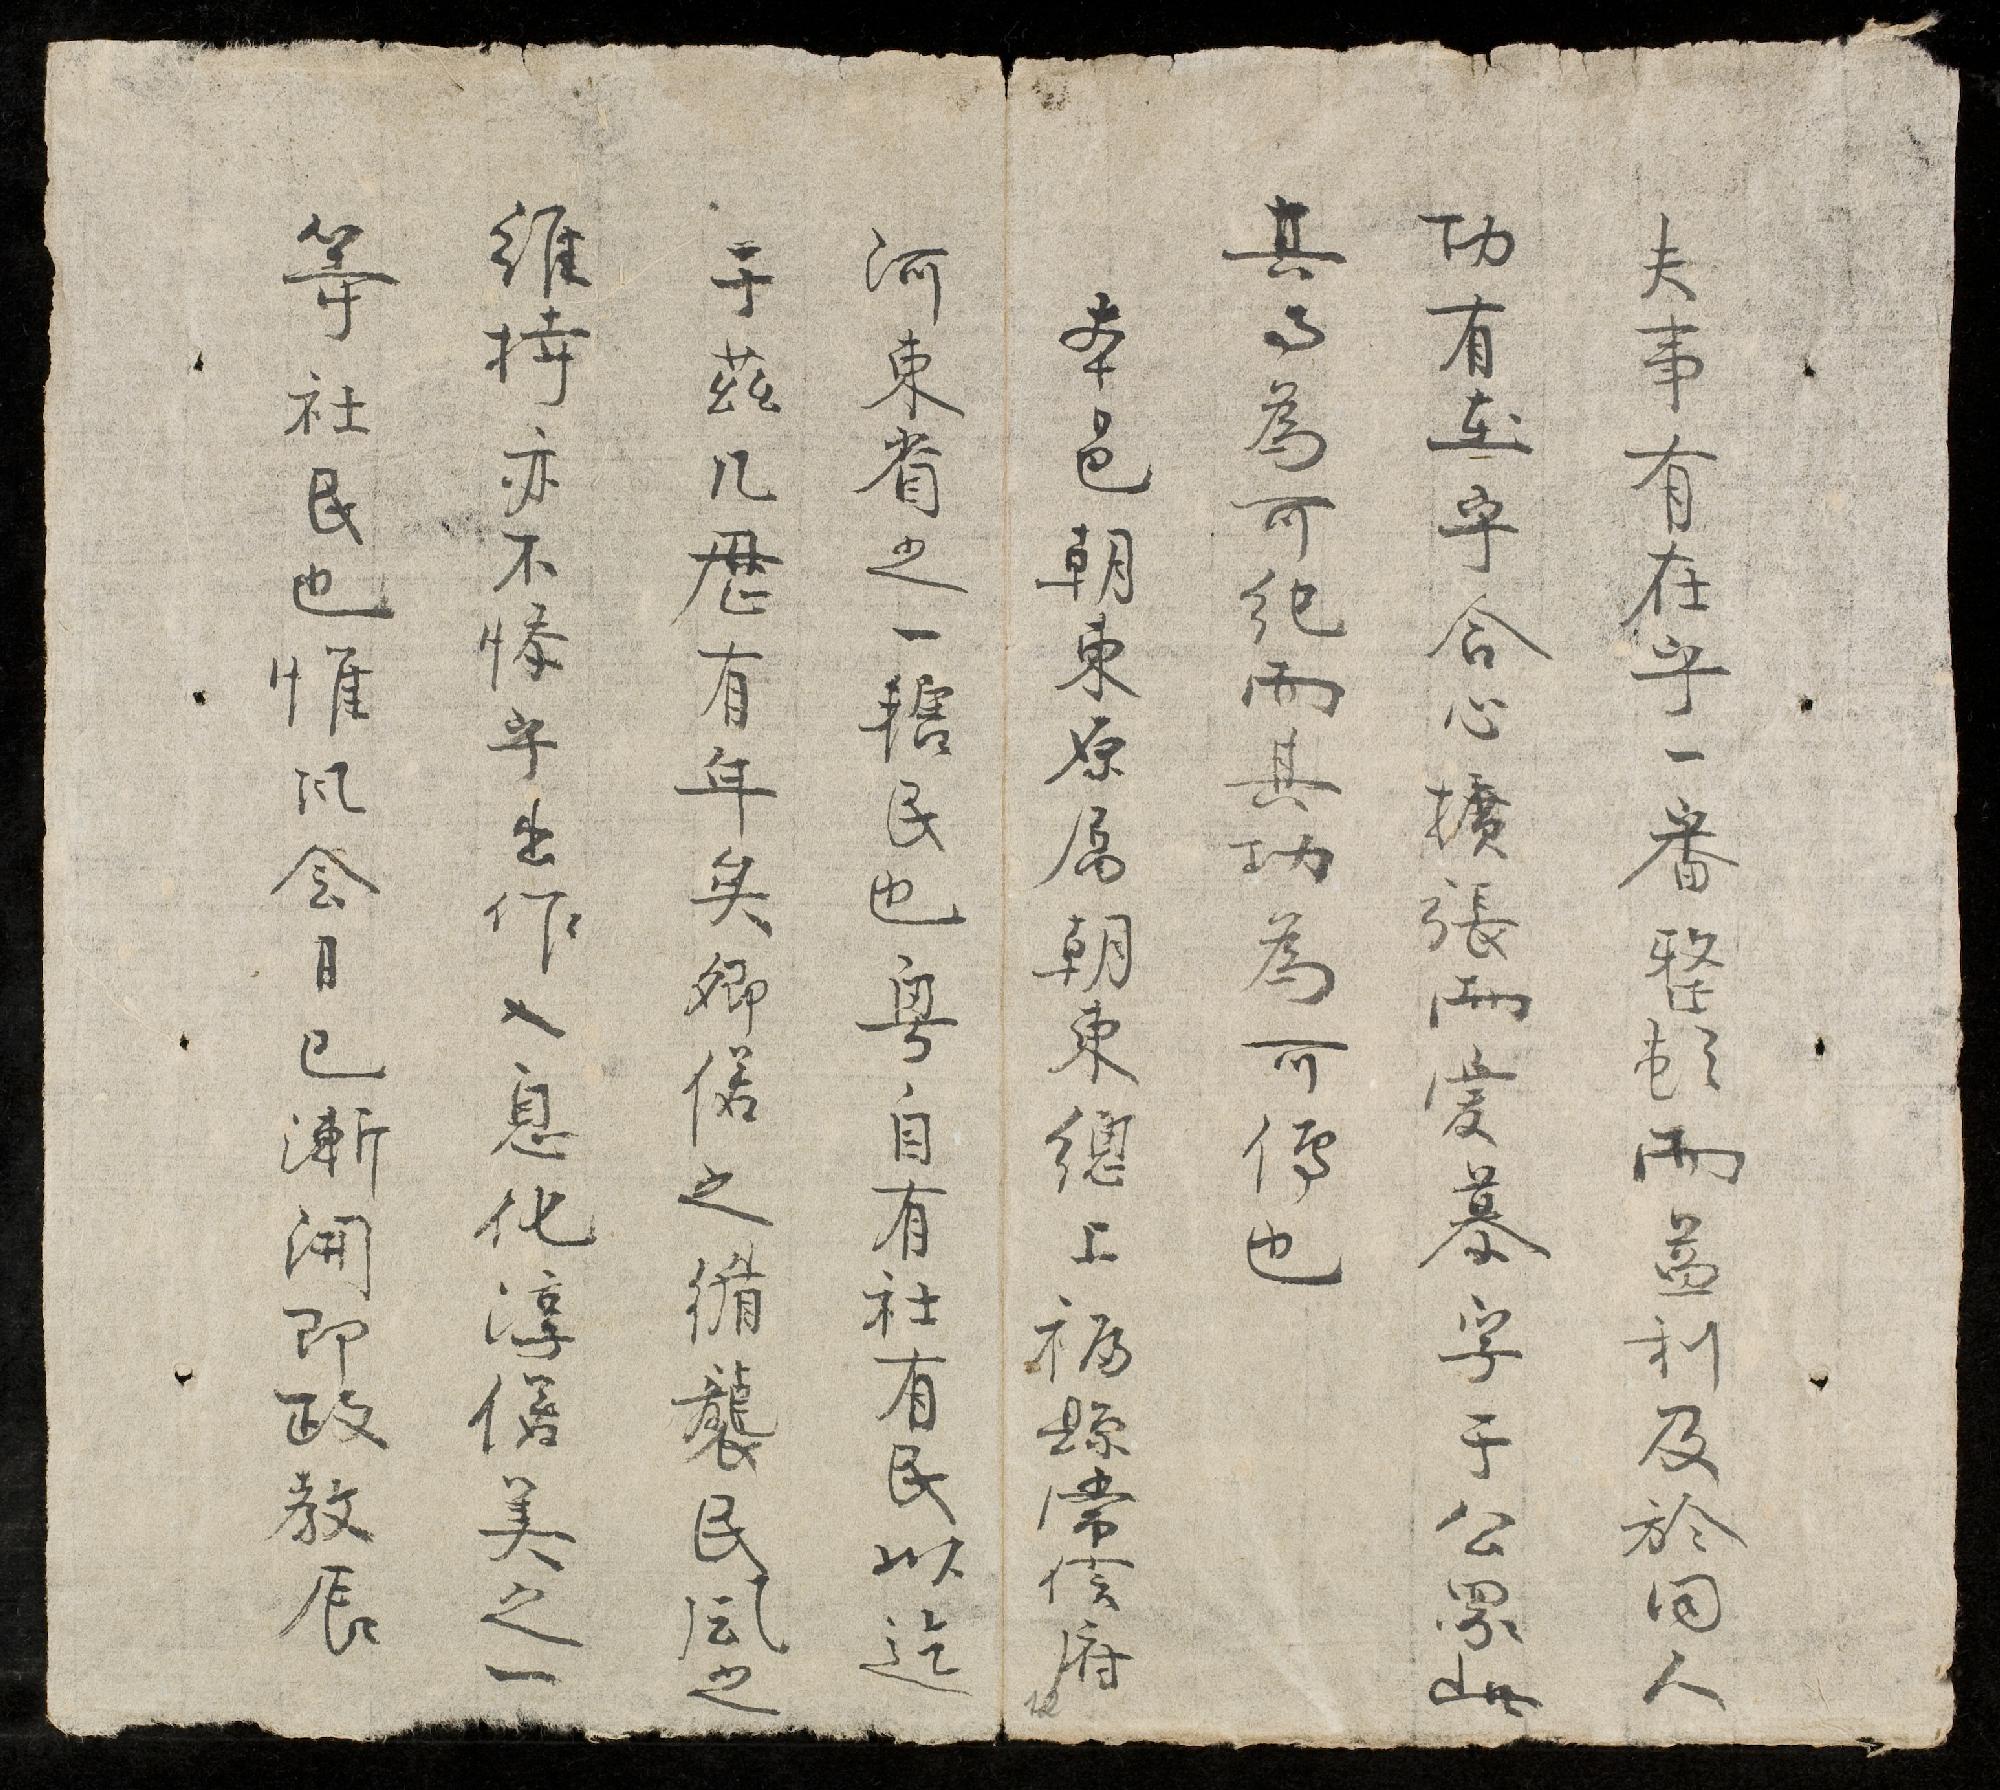 夫事有在乎一番整頓而益利及於同人
功有在乎合心擴張而愛慕孚于公眾此
其為可紀而其功為可傳也
本邑朝東原属朝東總上福縣常信府
河東省之一轄民也粵自有社有民以迄
于茲凡歷有年矣鄉俗之循襲民風之
維持亦不悖乎出作入息化淳俗美之一
等社民也惟风会日已漸開即政教辰